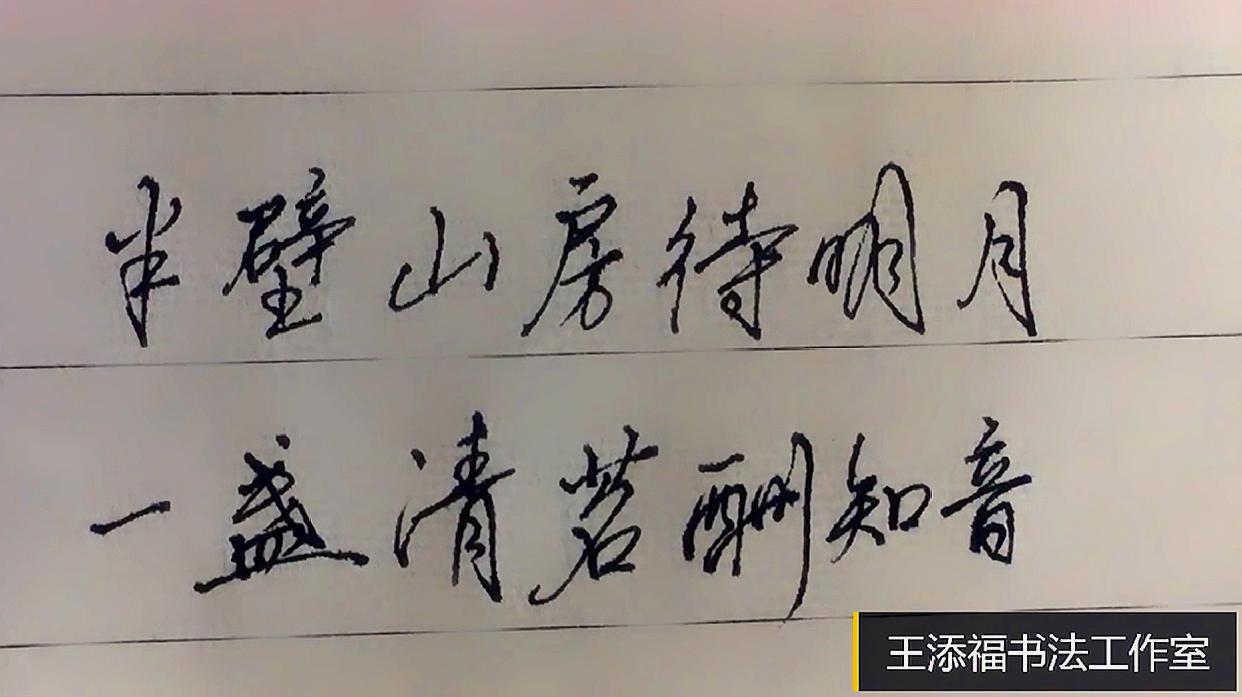 半壁山房待明月
一盏清茗酬知音
王添福书法工作室